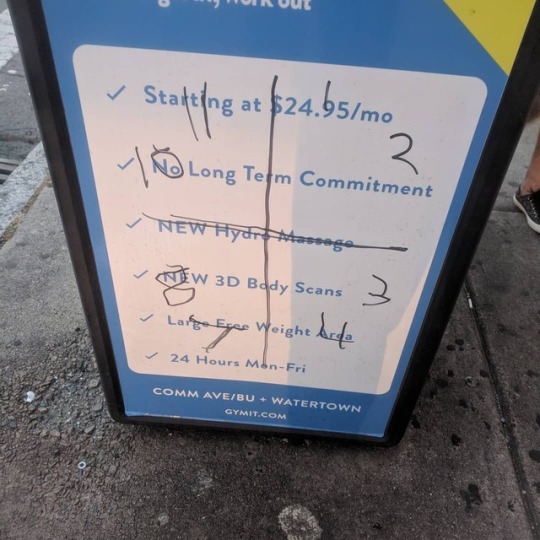 work out
Starting at $24.95/mo
11
1
2
No Long Term Commitment
10
NEW Hydro Massage
NEW 3D Body Scans
8
3
Large Free Weight Area
7
4
24 Hours Mon-Fri
COMM AVE/BU + WATERTOWN
GYMIT.COM